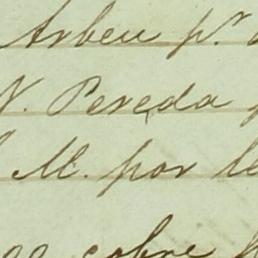 Arbeu pr
N. Pereda
M. por le
cobre